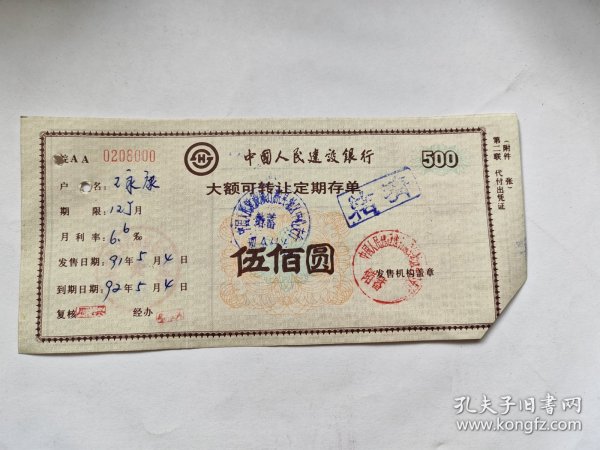 皖AA 0208000
中国人民建设银行
500
大额可转让定期存单
户 名：
期 限：12个月
月利率：6.6‰
发售日期：91年5月4日
到期日期：92年5月4日
复核
经办
伍佰圆
发售机构盖章
第二联 代付出凭证
（附件 张）
孔夫子旧书网
www.kongfz.com